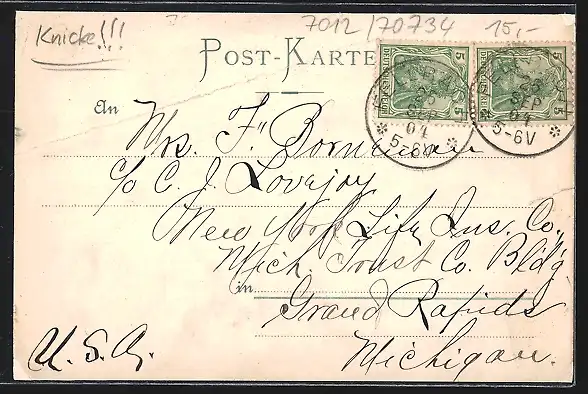 7012/70734 15,-
Knicke!!!
POST-KARTE
DEUTSCHES REICH 5 5
DEUTSCHES REICH 5 5
SEP
04
5-6V
SEP
04
5-6V
An
Mrs. F. Borneman
c/o C. J. Lovejoy
New York Life Ins. Co.,
Mich. Trust Co. Bldg
in
Grand Rapids
Michigan.
U.S.A.